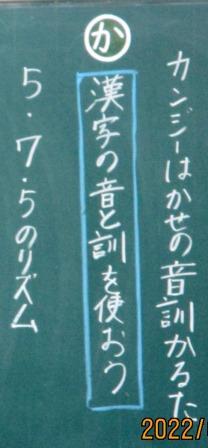 カンジーはかせの音訓かるた
か
漢字の音と訓を使おう
5・7・5のリズム
2022/